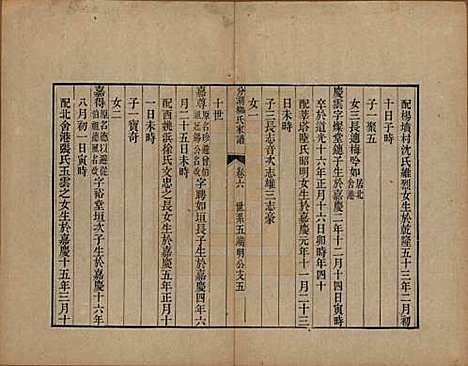 配楊墳村沈氏維烈女生於乾隆五十三年二月初
十日子時
子一聚五
女三長適梅吟如居北舍港
慶雲字燦堂總子生於嘉慶二年十二月十四日寅時
卒於道光十六年正月十六日卯時年四十
配莘塔陸氏昭明女生於嘉慶元年十一月二十三
日未時
子三長志音次志雄三志豪
女一
分湖柳氏家譜
卷六 世系五 嗣明公支五
十世
嘉尊原名珍遵曾伯祖延錫公名改字聘如垣長子生於嘉慶四年六
月二十五日未時
配西巍浜徐氏文忠公長女生於嘉慶五年正月十
一日未時
子一寶奇
女二
嘉得原名德以避從伯祖德公名改字裕堂垣次子生於嘉慶十六年
八月初一日寅時
配北舍港張氏玉雲之女生於嘉慶十五年三月十